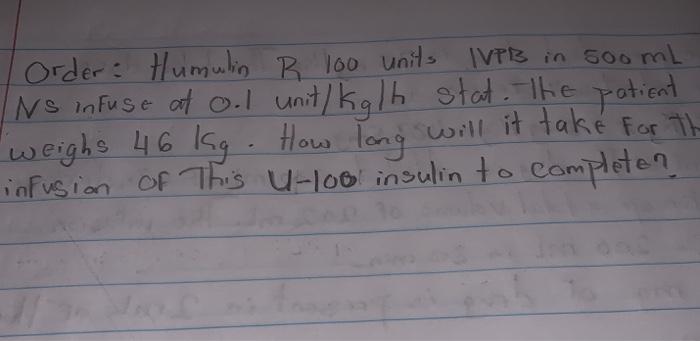 Order: Humulin R 100 units IVPB in 500 mL
NS infuse at 0.1 unit/kg/h stat. The patient
weighs 46 kg. How long will it take for th
infusion of This U-100 insulin to complete?